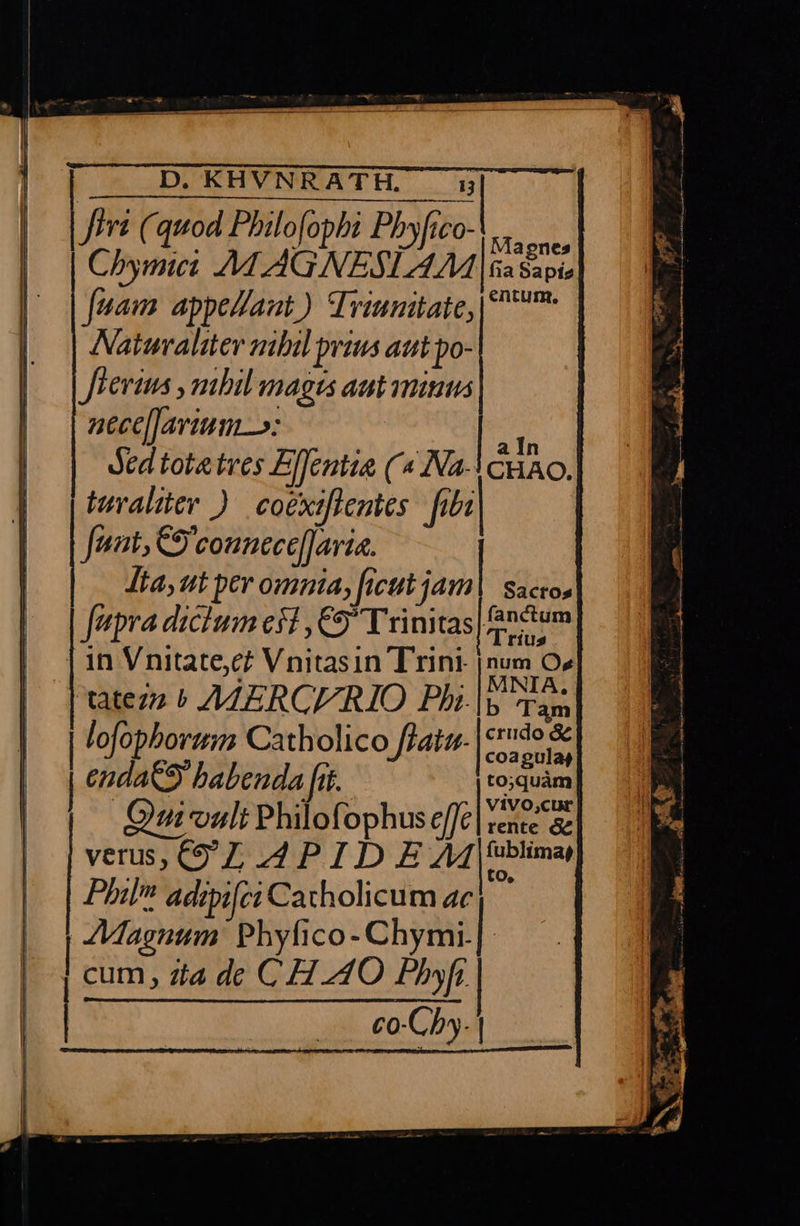 D. KHVNRATH. 13
ſtri (quod Philoſophi Phyſico-
Chymici MAGNESIAM
ſuam appellant) Triunitate,
Naturaliter nihil prius aut po-
ſterius, nihil magis aut minus
neceſſarium:
Sed totæ tres Eſſentiæ (a Na-
turaliter) coëxiſtentes ſibi
ſunt, & conneceſſariæ.
Ita, ut per omnia, ſicut jam
ſupra dictum eſt, & Trinitas
in Vnitate, et Vnitas in Trini-
tate in b MERCVRIO Phi-
loſophorum Catholico ſtatu-
enda & habenda ſit.
Qui vult Philoſophus eſſe
verus, & LAPIDEM
Philm adipiſci Catholicum ac
Magnum Phyſico-Chymi-
cum, ita de CHAO Phyſi-
co-Chy-
Magneſ
ſia Sapiſ
entum.
a In
CHAO.
Sacroſ
ſanctum
Triuſ
num Oſ
MNIA.
b Tam
crudo &
coagulaſ
to; quàm
vivo, cur
rente &
ſublimaſ
to.